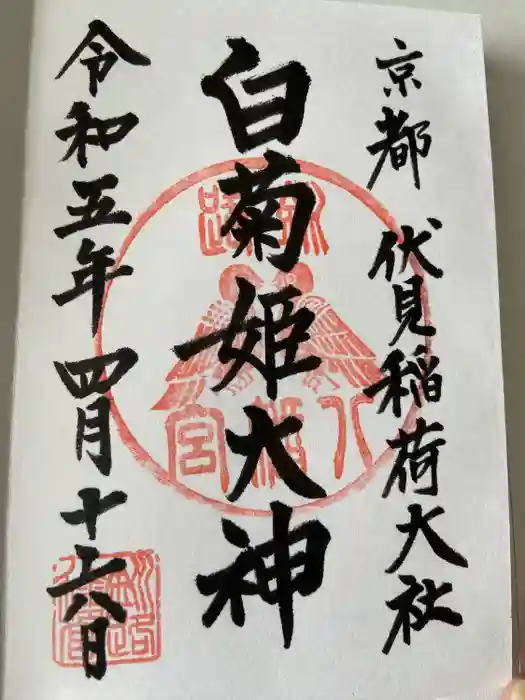 京都 伏見稲荷大社
白菊姫大神
令和五年四月十六日